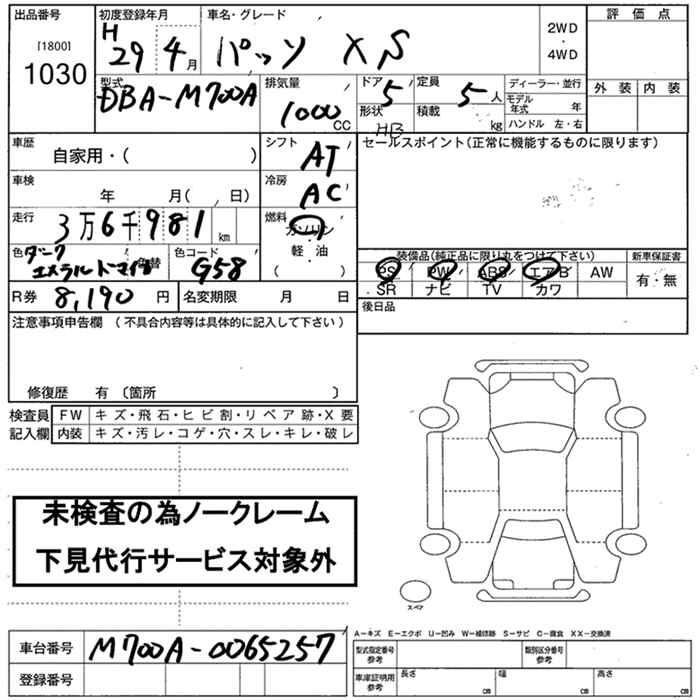 出品番号 初度登録年月 車名・グレード 評価点
[1800] H 29年 4月 パッソ XS 2WD・4WD
1030
型式 排気量 ドア 定員 ディーラー・並行 外装 内装
DBA-M700A 1000CC 5 5人 モデル年式 年
形状 HB 積載 kg ハンドル 左・右
車歴 自家用・( ) シフト AT セールスポイント(正常に機能するものに限ります)
車検 年 月( 、 日) 冷房 AC
走行 3万6千981km 燃料 ガソリン・軽油 ( )
色 ダークエメラルドマイカ 色替 色コード G58
装備品(純正品に限り丸をつけて下さい) 新車保証書
PS PW ABS エアB AW 有・無
SR ナビ TV カワ
R券 8,190円 名変期限 月 日 後日品
注意事項申告欄 (不具合内容等は具体的に記入して下さい)
修復歴 有 〔箇所 〕
検査員 FW キズ・飛石・ヒビ割・リペア跡・X要
記入欄 内装 キズ・汚レ・コゲ・穴・スレ・キレ・破レ
未検査の為ノークレーム
下見代行サービス対象外
スペア
A-キズ E-エクボ U-凹み W-補修跡 S-サビ C-腐食 XX-交換済
車台番号 M700A-0065257 型式指定番号 参考 類別区分番号 参考
登録番号 車庫証明用 参考 長さ cm 幅 cm 高さ cm